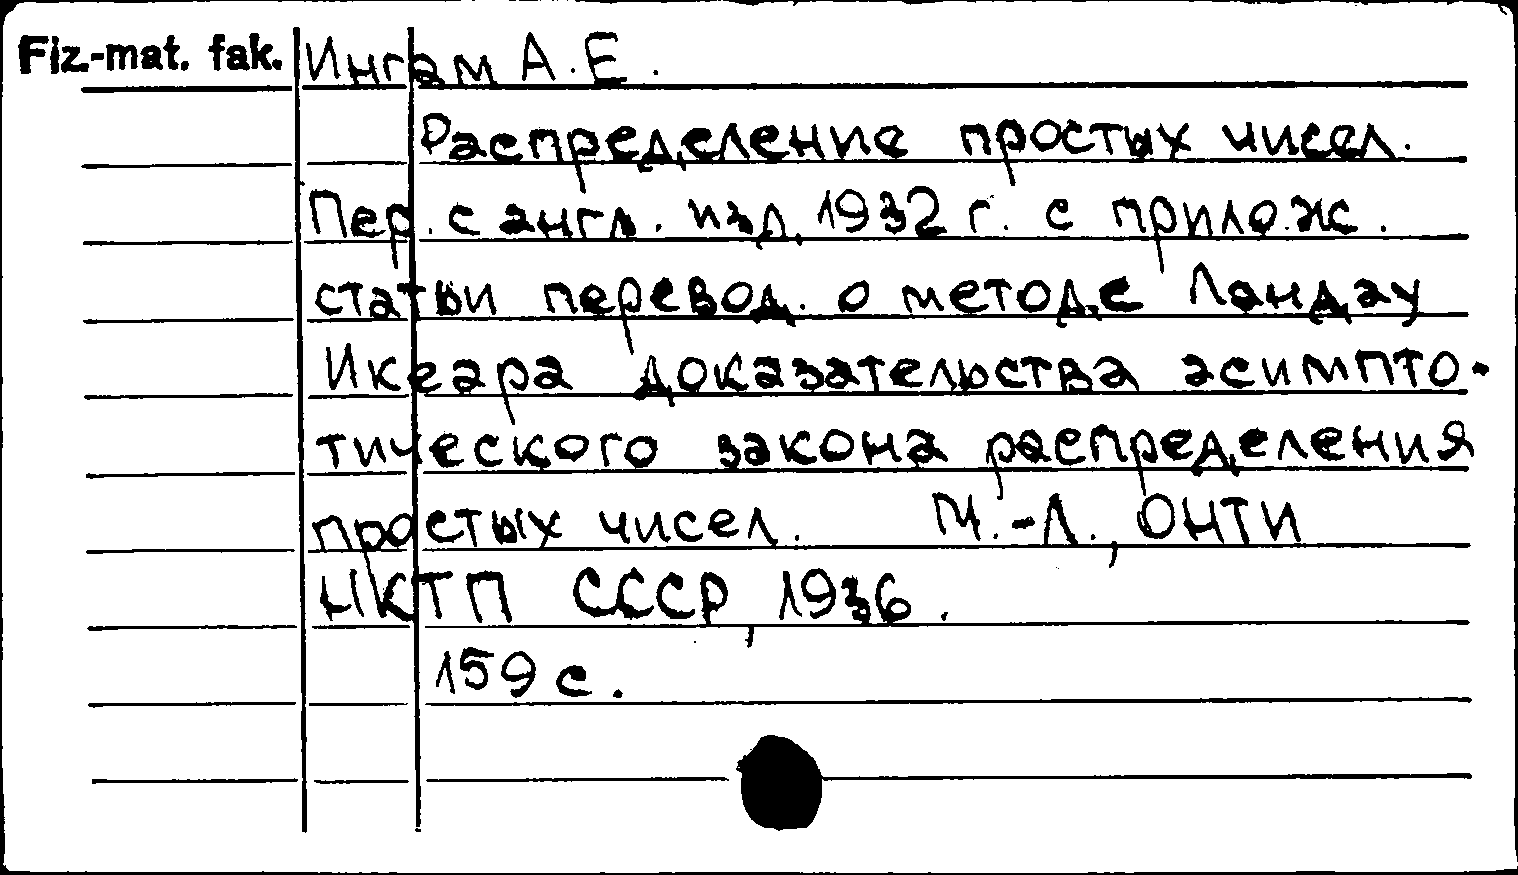 Fiz.-mat. fak. Ингам А.Е.
Распределение простых чисел.
Пер. с англ. изд. 1932 г. с прилож.
статьи перевод. о методе Ландау
Икеара доказательства асимпто-
тического закона распределения
простых чисел. М.-Л., ОНТИ
НКТП СССР, 1936.
159 с.